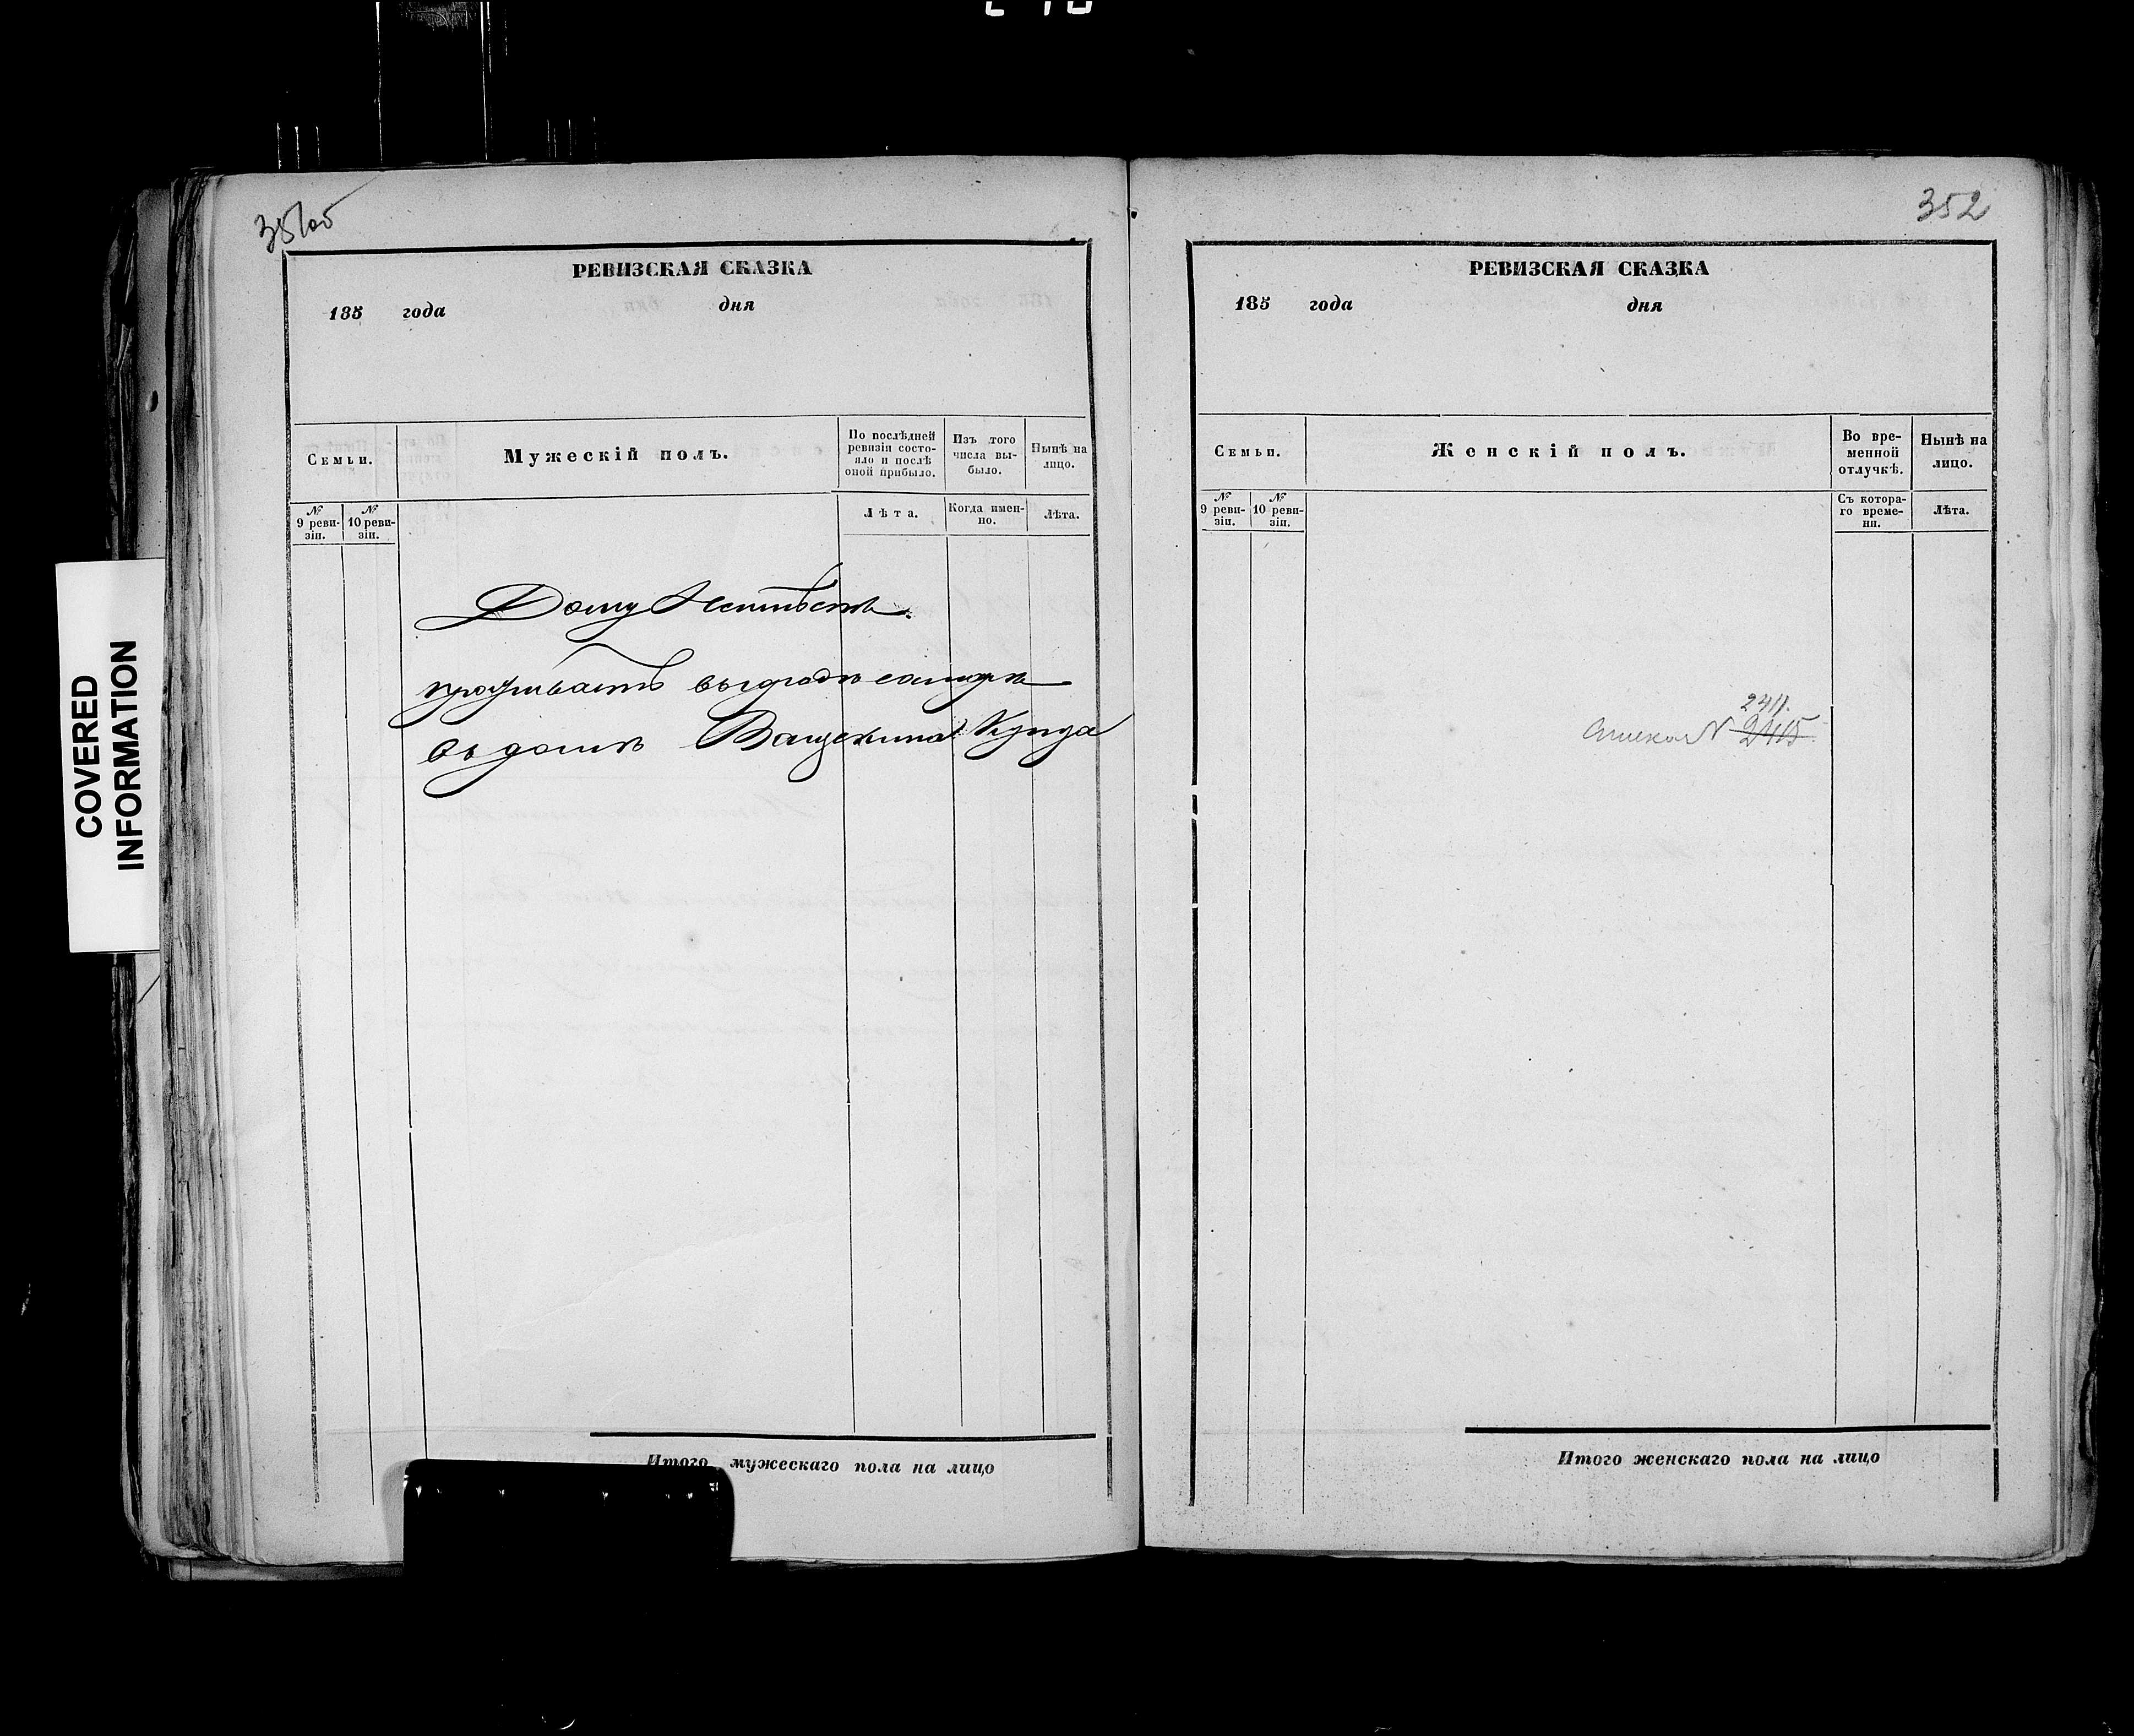 351об
352
РЕВИЗСКАЯ СКАЗКА
185 года дня
Семьи.
Мужескій полъ.
По послѣдней ревизіи состо-
яло и послѣ
оной прибыло.
Изъ того
числа вы-
было.
Нынѣ на
лицо.
№
9 реви-
зіи.
№
10 реви-
зіи.
Лѣта.
Когда имен-
но.
Лѣта.
Дому
проживаетъ въ городѣ
въ домѣ Ващекина
Итого мужескаго пола на лицо
РЕВИЗСКАЯ СКАЗКА
185 года дня
Семьи.
Женскій полъ.
Во вре-
менной
отлучкѣ.
Нынѣ на
лицо.
№
9 реви-
зіи.
№
10 реви-
зіи.
Съ котора-
го време-
ни.
Лѣта.
2411.
№ 2415
Итого женскаго пола на лицо
COVERED
INFORMATION